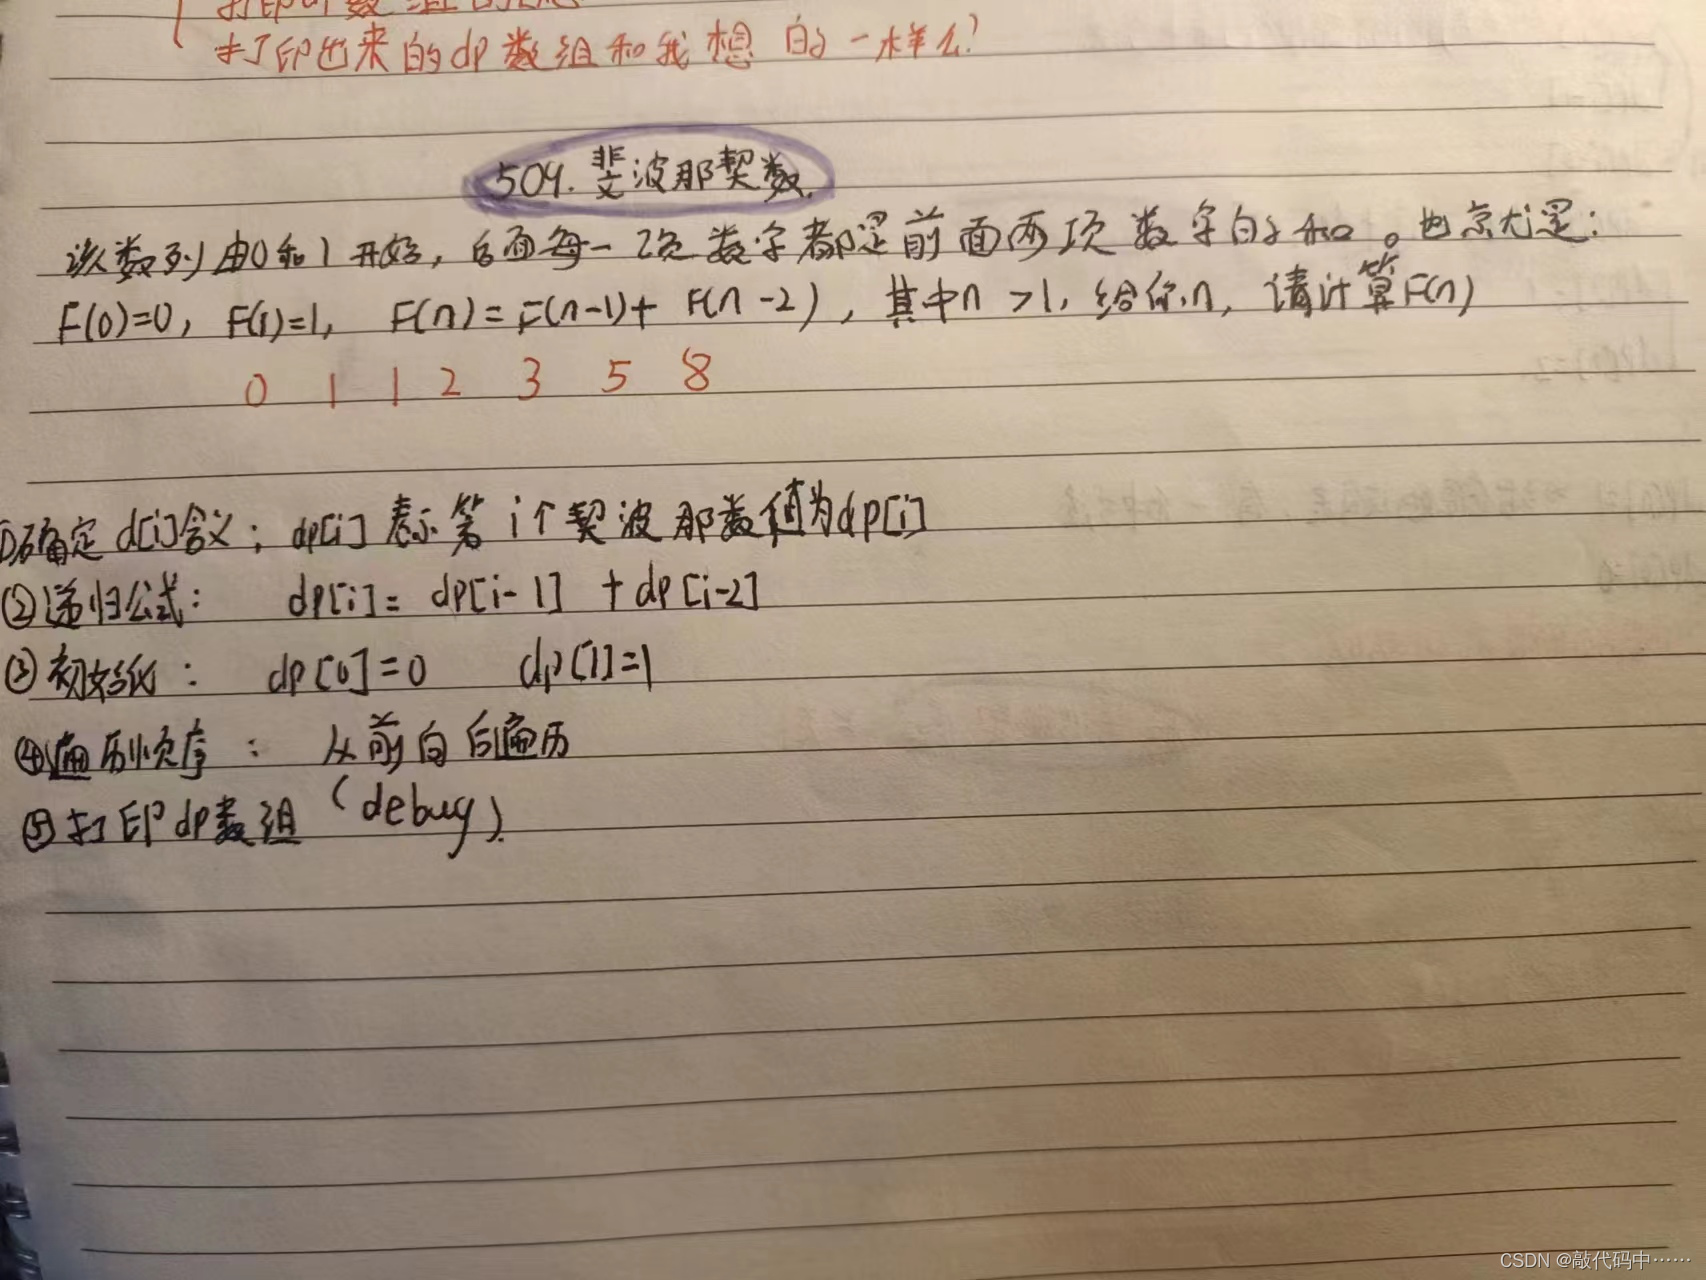 打印出来的dp数组和我想的一样么?
509.斐波那契数.
该数列由0和1开始,后面每一项数字都是前面两项数字的和。也就是:
F(0)=0, F(1)=1, F(n)=F(n-1)+F(n-2),其中n>1,给你n,请计算F(n)
0 1 1 2 3 5 8
①确定d[i]含义;dp[i]表示第i个契波那数值为dp[i]
②递归公式: dp[i]= dp[i-1] +dp[i-2]
③初始化: dp[0]=0 dp[1]=1
④遍历顺序: 从前向后遍历
⑤打印dp数组(debug).
CSDN @敲代码中……